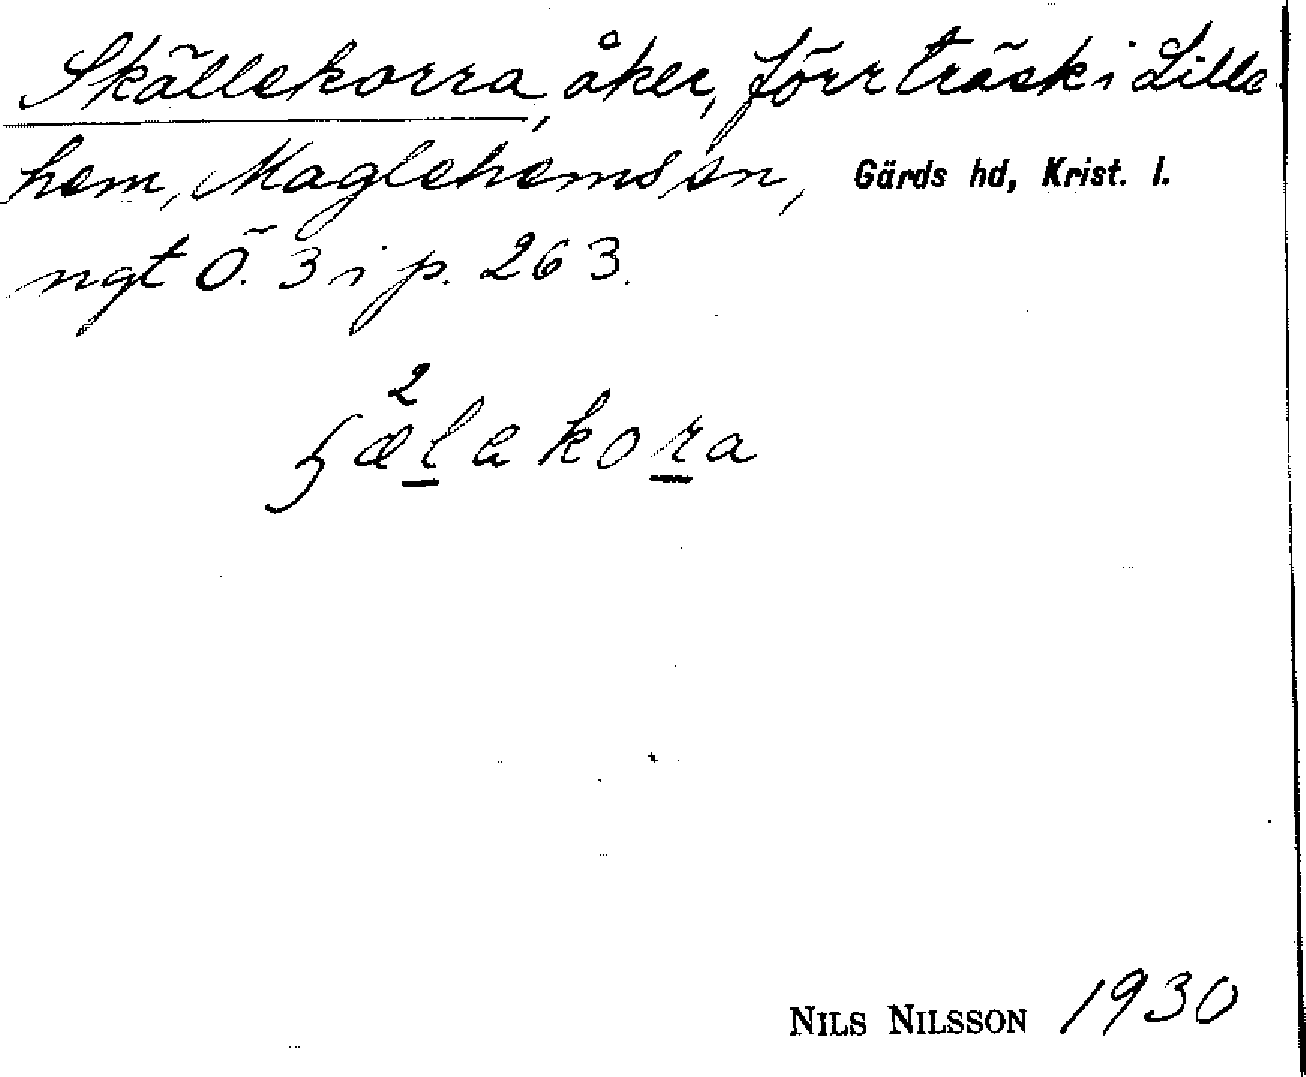 Skällekorra, åker, förr träsk i Lille-
hem, Maglehems sn, Gärds hd, Krist. l.
ngt Ö. 3 i p. 263.
2
ɧælakora
NILS NILSSON 1930